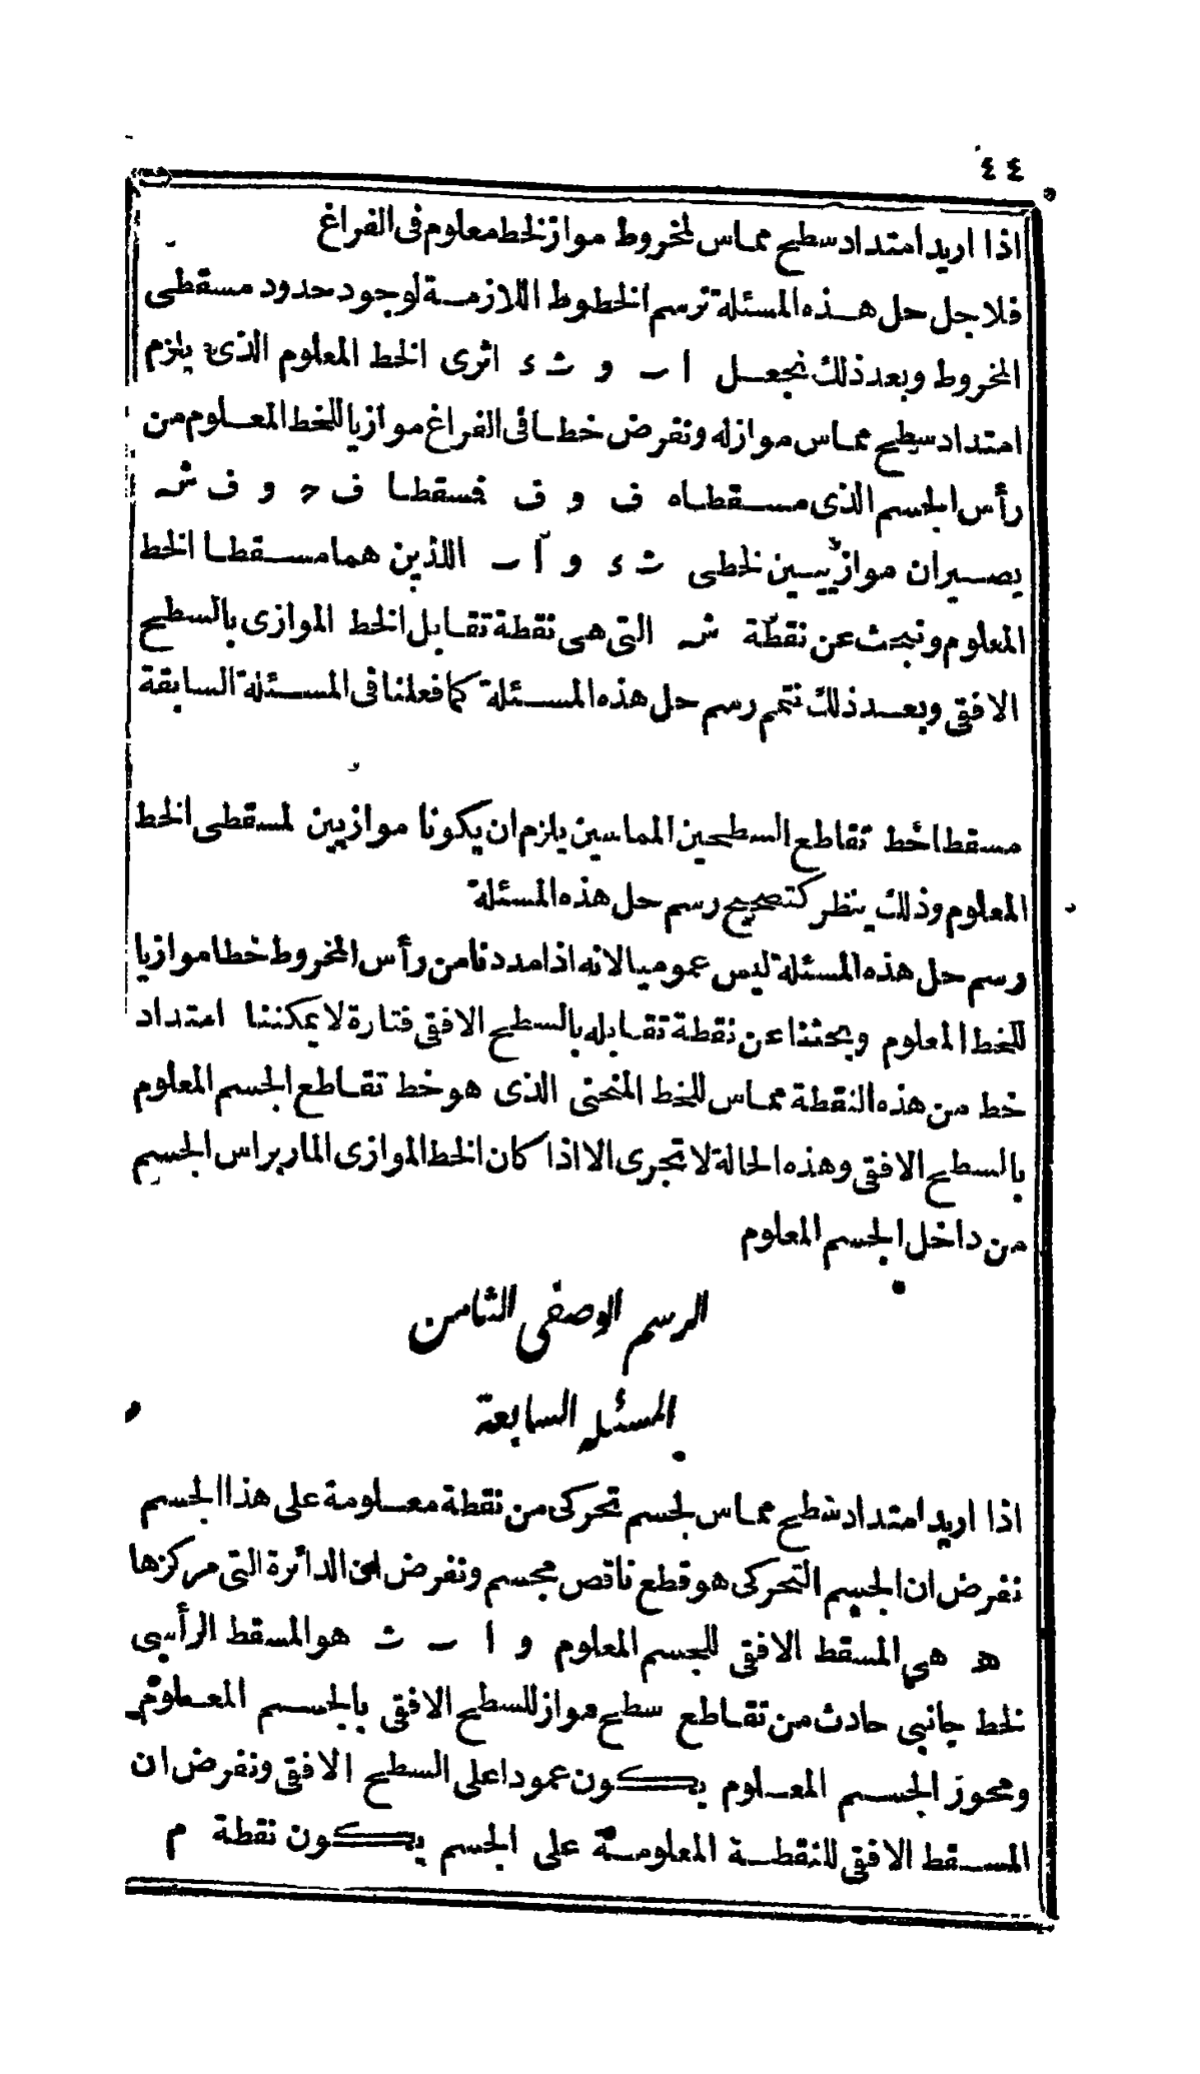 ٤٤
اذا اريد امتداد سطيح مماس لمخروط مواز لخط معلوم فى الفراغ
فلاجل حل هذه المسئلة ترسم الخطوط اللازمة لوجود حدود مسقطى
المخروط وبعد ذلك نجعل ا ب و ث د اثرى الخط المعلوم الذى يلزم
امتداد سطيح مماس مواز له ونفرض خطا فى الفراغ موازيا للخط المعلوم من
رأس الجسم الذى مسقطاه ف و ق فسقطا ف ح و ف ش
يصيران موازيين لخطى ث د و ا ب اللذين هما مسقطا الخط
المعلوم ونبحث عن نقطة ش التى هى نقطة تقابل الخط الموازى بالسطيح
الافقى وبعد ذلك نتم رسم حل هذه المسئلة كما فعلنا فى المسئلة السابقة
مسقطا خط تقاطع السطحين المماسين يلزم ان يكونا موازيين لمسقطى الخط
المعلوم وذلك ينظر كتصحيح رسم حل هذه المسئلة
رسم حل هذه المسئلة ليس عموميا لانه اذا مددنا من رأس المخروط خطا موازيا
للخط المعلوم وبحثنا عن نقطة تقابله بالسطيح الافقى فتارة لا يمكننا امتداد
خط من هذه النقطة مماس للخط المنحنى الذى هو خط تقاطع الجسم المعلوم
بالسطيح الافقى وهذه الحالة لا تجرى الا اذا كان الخط الموازى المار براس الجسم
من داخل الجسم المعلوم
الرسم الوصفى الثامن
المسئلة السابعة
اذا اريد امتداد سطيح مماس لجسم تحركى من نقطة معلومة على هذا الجسم
نفرض ان الجسم التحركى هو قطع ناقص مجسم ونفرض ان الدائرة التى مركزها
ه هى المسقط الافقى للجسم المعلوم و ا ب ث هو المسقط الرأسى
لخط جانبى حادث من تقاطع سطيح مواز للسطيح الافقى بالجسم المعلوم
ومحوز الجسم المعلوم يكون عمودا على السطيح الافقى ونفرض ان
المسقط الافقى للنقطة المعلومة على الجسم يكون نقطة م